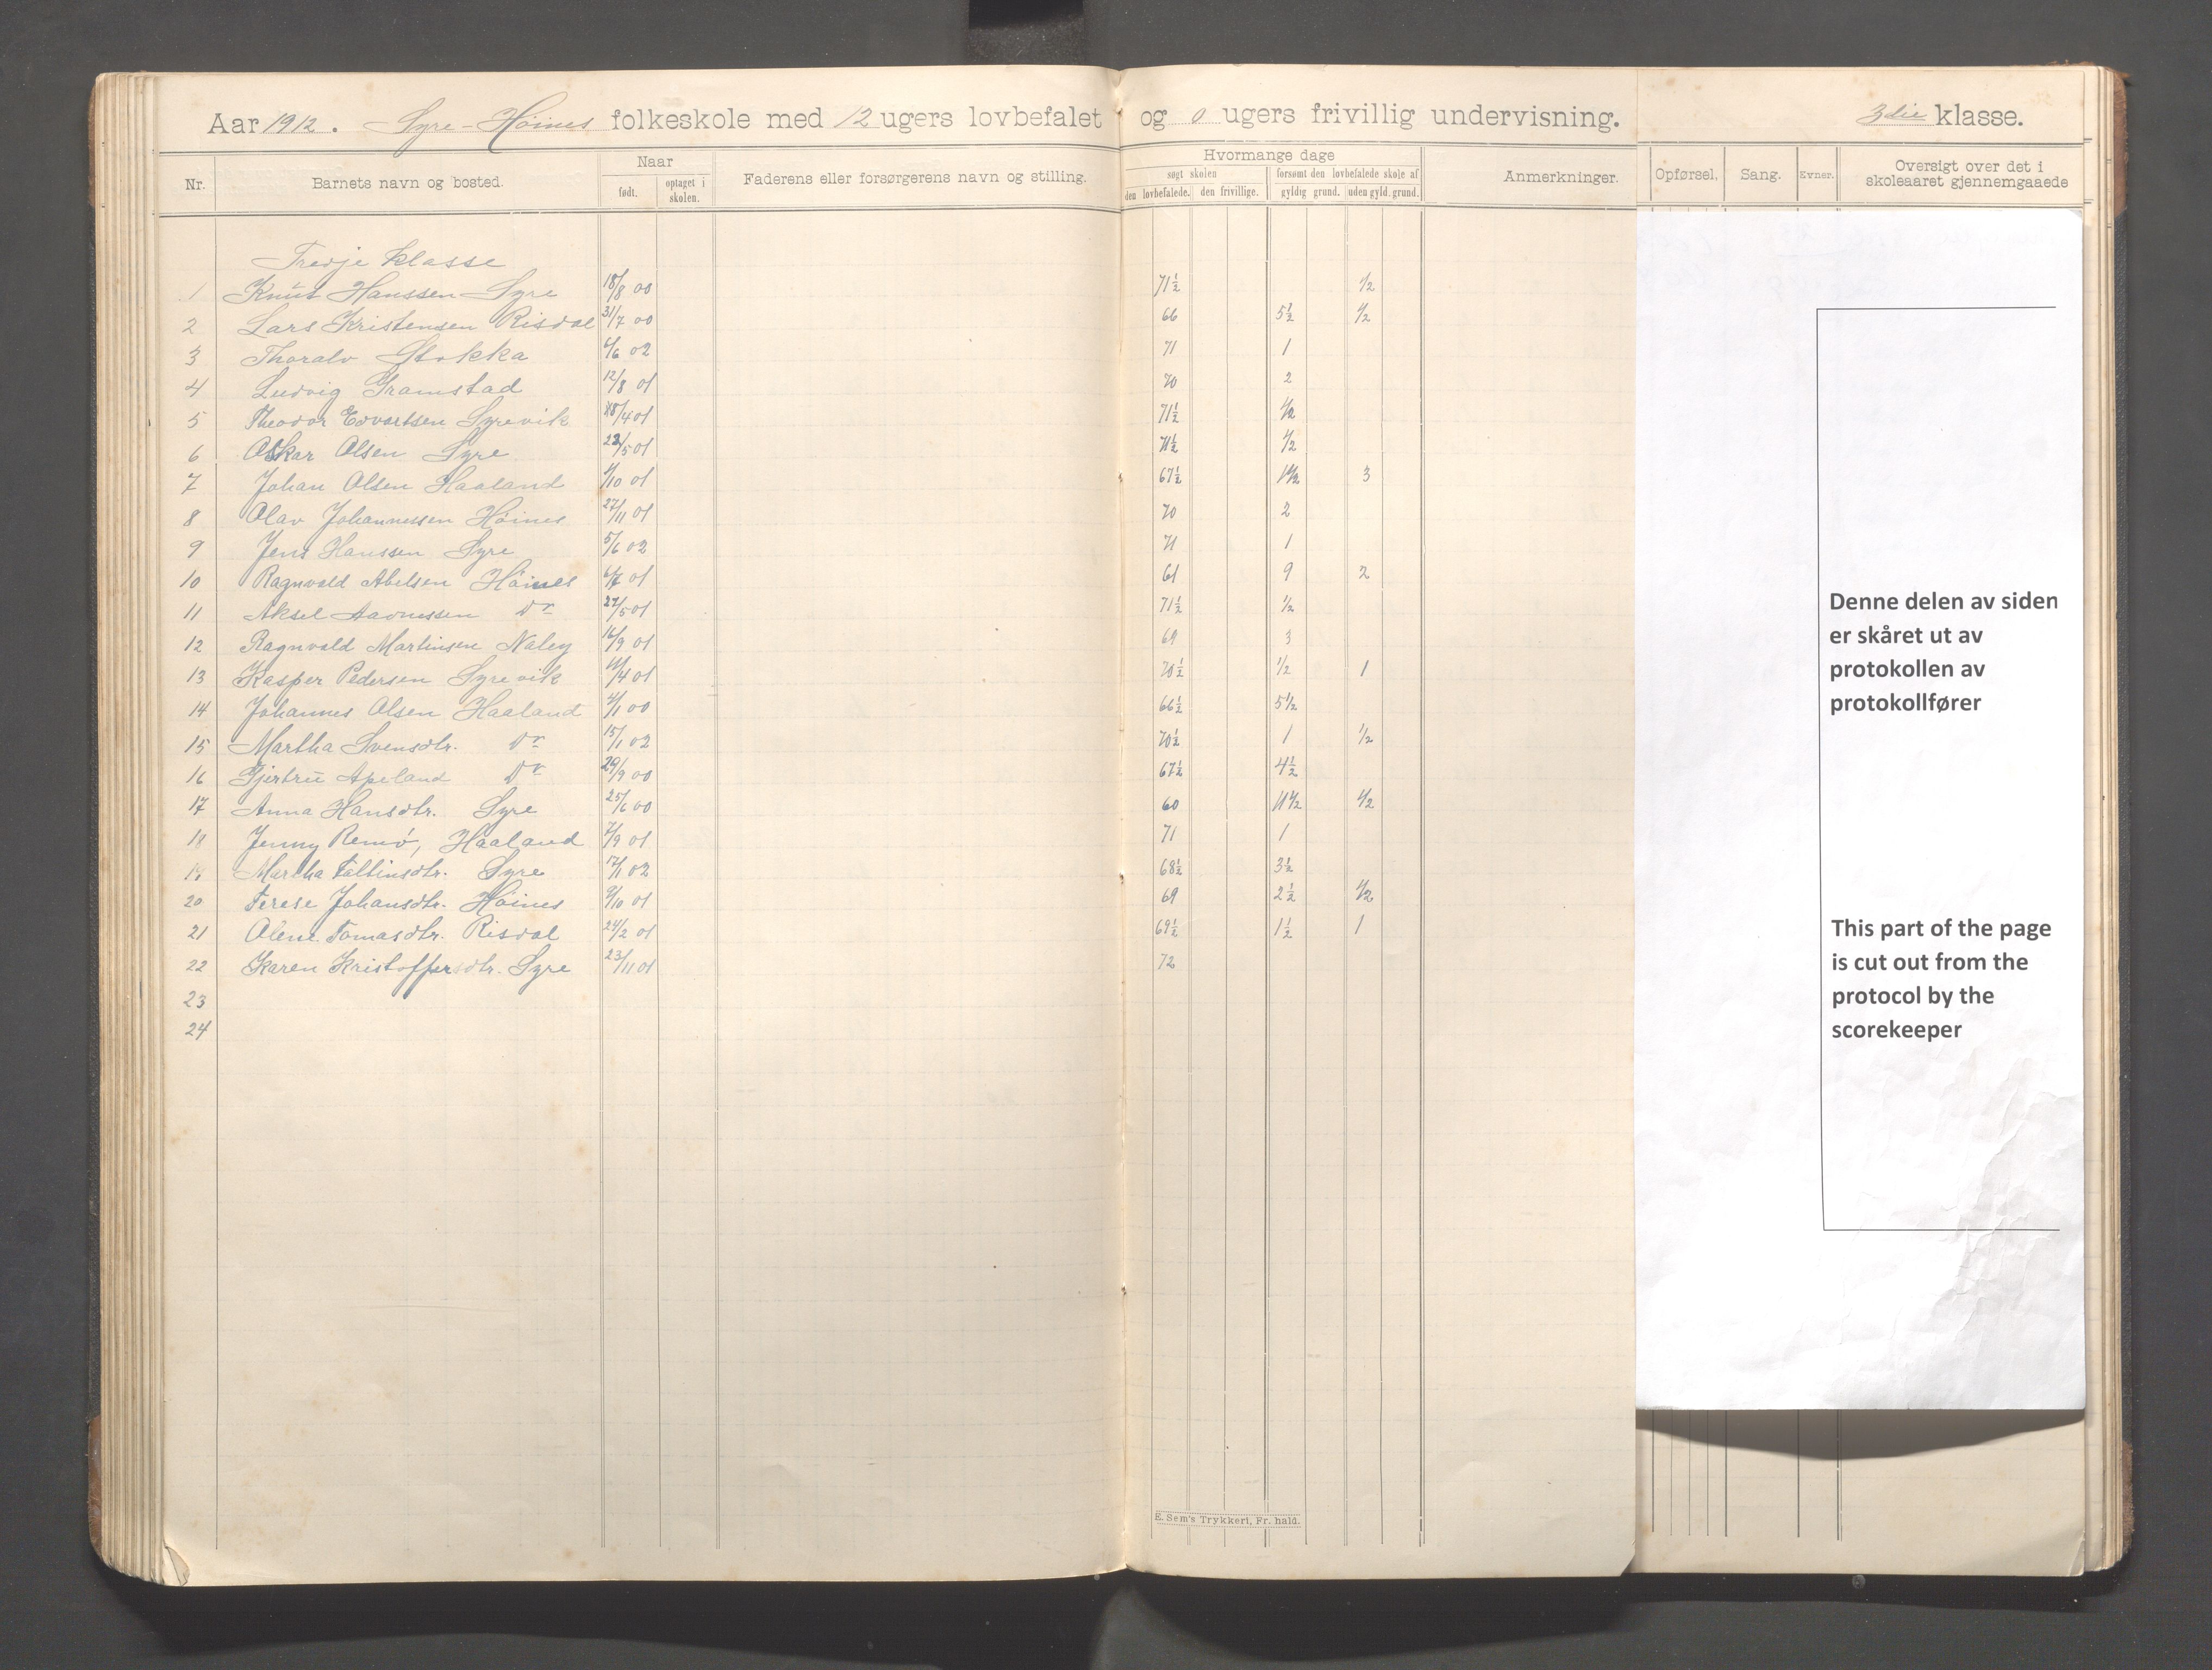 Aar 1912. Syre-Höines folkeskole med 12 ugers lovbefalet og 0 ugers frivillig undervisning. 3die klasse.
Nr. Barnets navn og bosted. Naar født. optaget i skolen. Faderens eller forsørgerens navn og stilling. Hvormange dage søgt skolen den lovbefalede. den frivillige. forsømt den lovbefalede skole af gyldig grund. uden gyld. grund. Anmerkninger. Opførsel. Sang. Evner. Oversigt over det i skoleaaret gjennemgaaede
Tredje klasse
1 Knut Hanssen Syre 18/8 00 71½ ½
2 Lars Kristensen Risdal 31/7 00 66 5½ ½
3 Thoralv Stokka 4/6 02 71 1
4 Ludvig Gramstad 12/8 01 70 2
5 Theodor Edvartsen Syrevik 18/4 01 71½ ½
6 Oskar Olsen Syre 22/5 01 71½ ½
7 Johan Olsen Haaland 4/10 01 67½ 1½ 3
8 Olav Johannessen Höines 27/11 01 70 2
9 Jens Hanssen Syre 5/6 02 71 1
10 Ragnvald Abelsen Höines 6/7 01 61 9 2
11 Aksel Aadnessen Do 27/5 01 71½ ½
12 Ragnvald Martinsen Naley 16/9 01 69 3
13 Kasper Pedersen Syrevik 11/4 01 70½ ½ 1
14 Johannes Olsen Haaland 4/1 00 66½ 5½
15 Martha Svensdtr. Do 15/1 02 70½ 1 ½
16 Gjertru Apeland Do 29/9 00 67½ 4½
17 Anna Hansdtr. Syre 25/6 00 60 11½ ½
18 Jenny Remö, Haaland 7/9 01 71 1
19 Martha Faltinsdtr. Syre 17/1 02 68½ 3½
20 Terese Johansdtr. Höines 9/10 01 69 2½ ½
21 Olene Tomasdtr. Risdal 24/2 01 69½ 1½ 1
22 Karen Kristoffersdtr. Syre 23/11 01 72
23
24
E. Sem's Trykkeri, Fr. hald.
Denne delen av siden
er skåret ut av
protokollen av
protokollfører
This part of the page
is cut out from the
protocol by the
scorekeeper